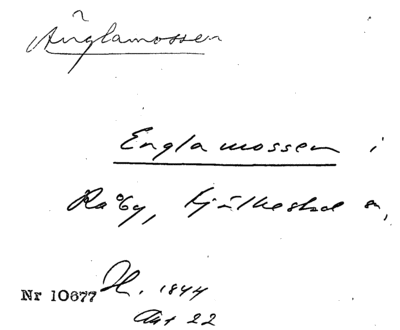 Änglamossen
Englamossen i
Råby, Kjulkestad sn,
Nr 10677 H. 1844
Akt 22